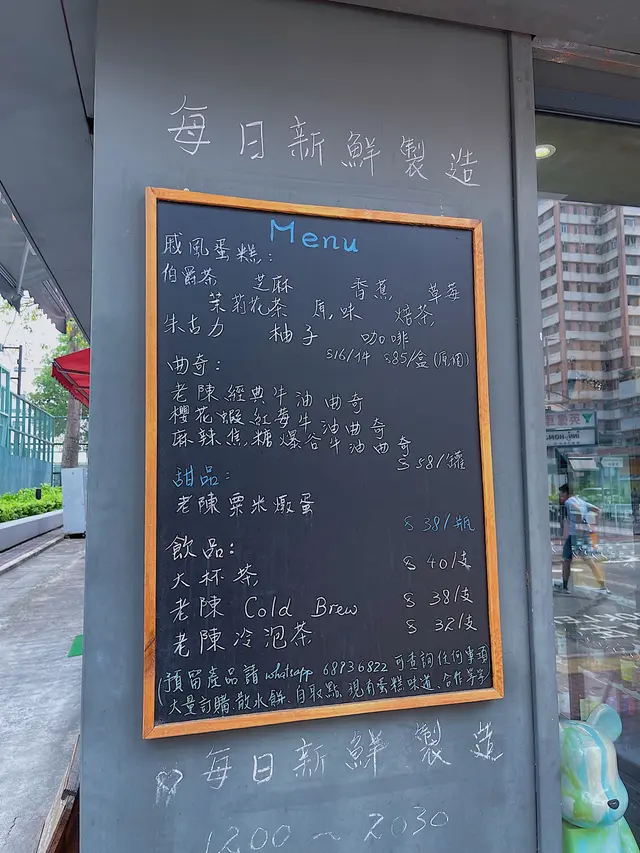 每日新鮮製造
Menu
戚風蛋糕:
伯爵茶 芝麻 香蕉 草莓
茉莉花茶 原味 焙茶
朱古力 柚子 咖啡
$16/件 $85/盒(六個)
曲奇:
老陳經典牛油曲奇
櫻花蝦紅莓牛油曲奇
麻辣焦糖爆谷牛油曲奇
$58/罐
甜品:
老陳粟米燉蛋
$38/瓶
飲品:
大杯茶 $40/支
老陳 Cold Brew $38/支
老陳冷泡茶 $32/支
(預留產品請 whatsapp 68936822 可查詢任何事項
大量訂購、散水餅、自取點、現有蛋糕味道、合作等等)
每日新鮮製造
1200～2030